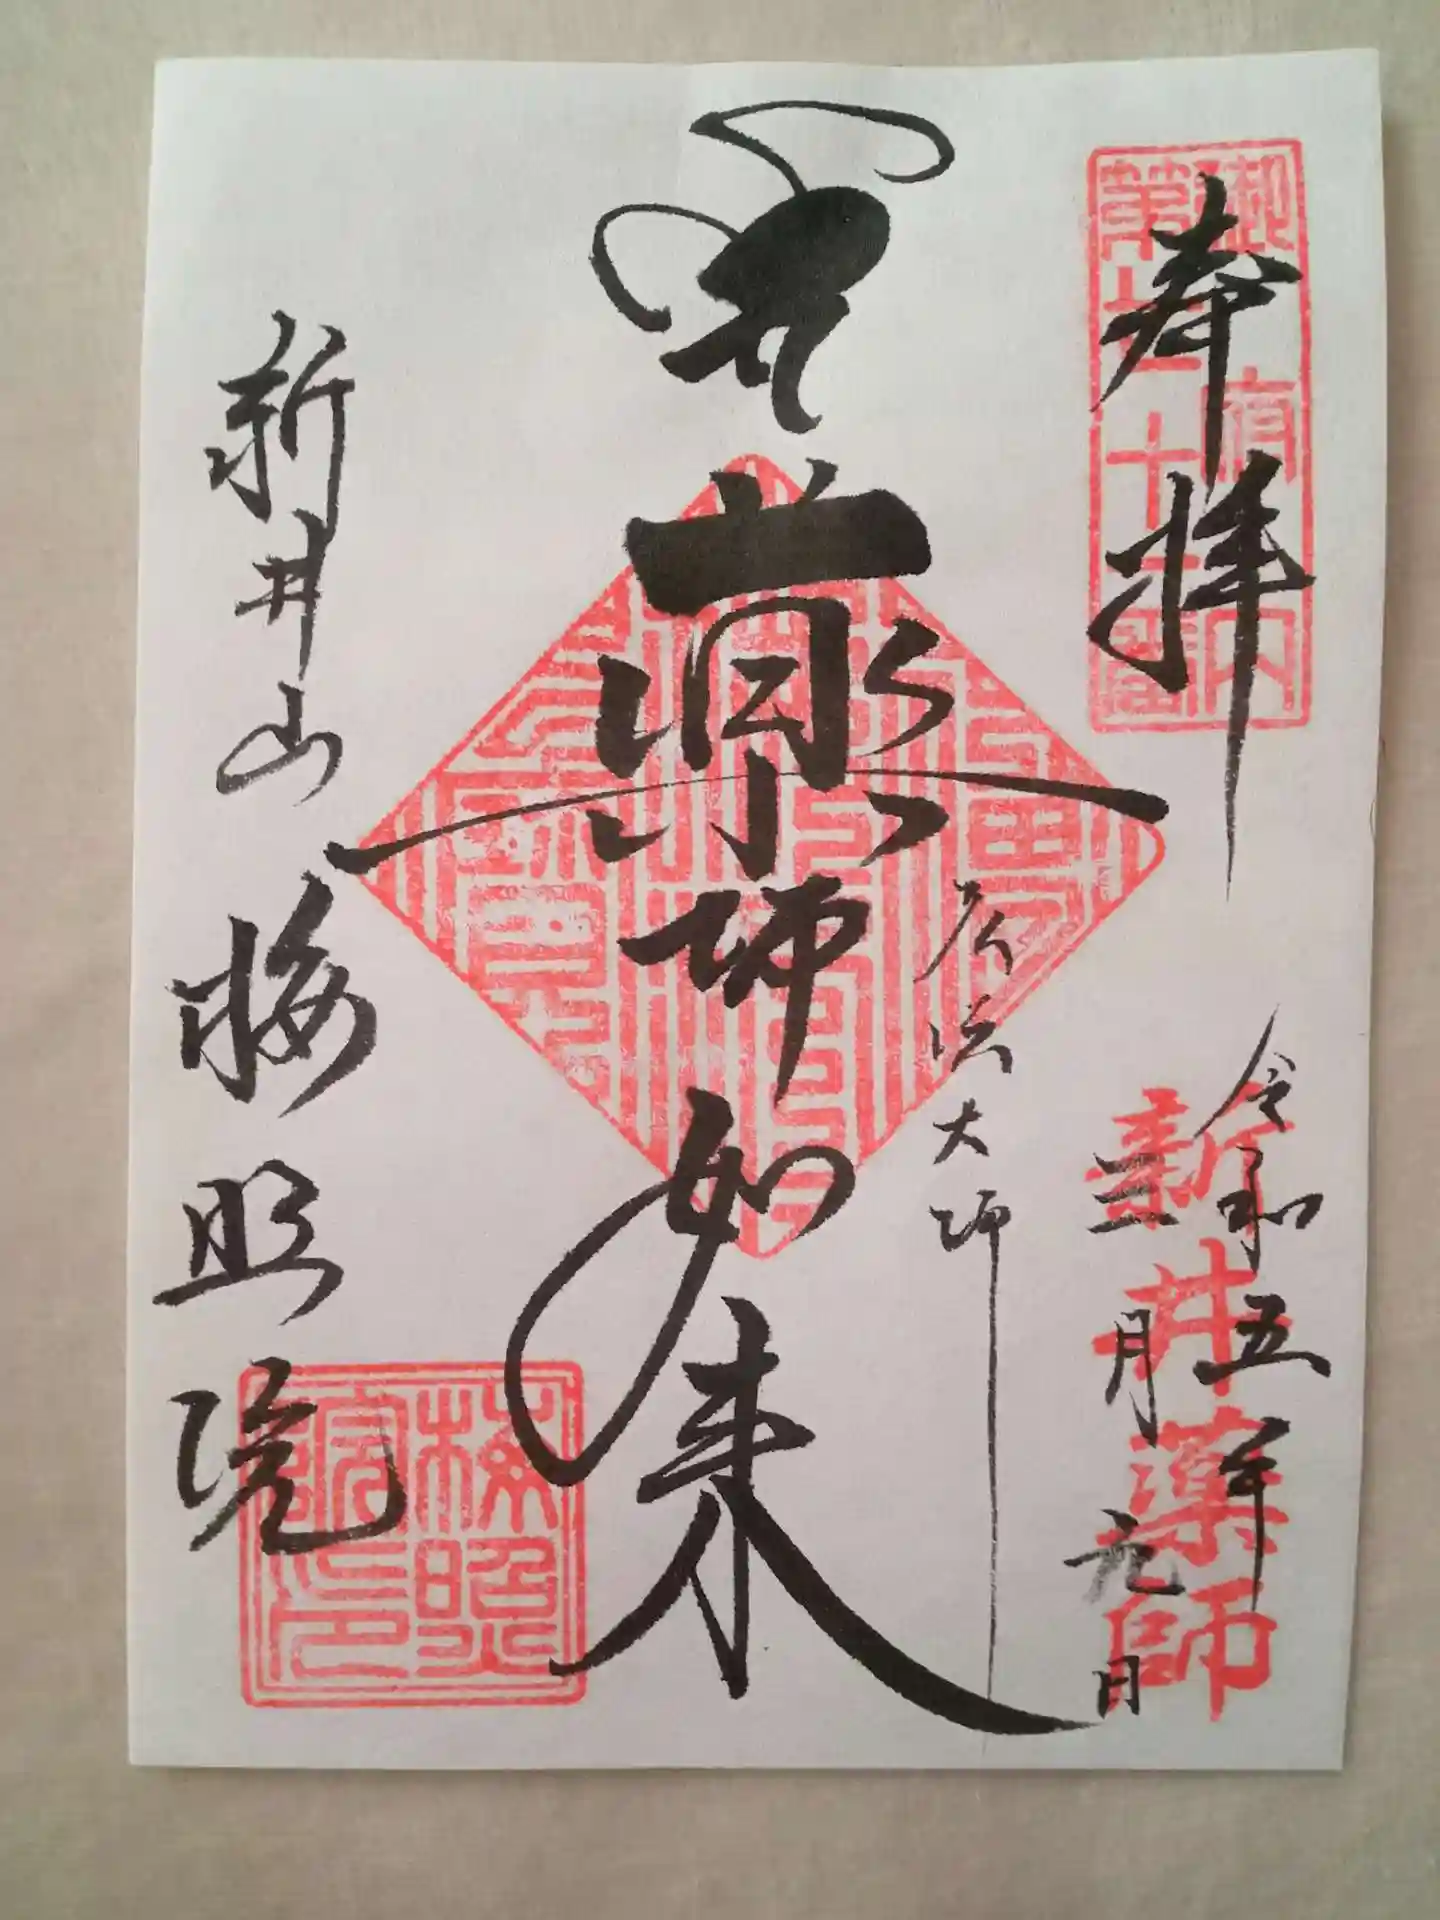 奉拝
御府内
第七十一番
令和五年
三月九日
新井薬師
弘法大師
薬師如来
新井山
梅照院
梅照
院印